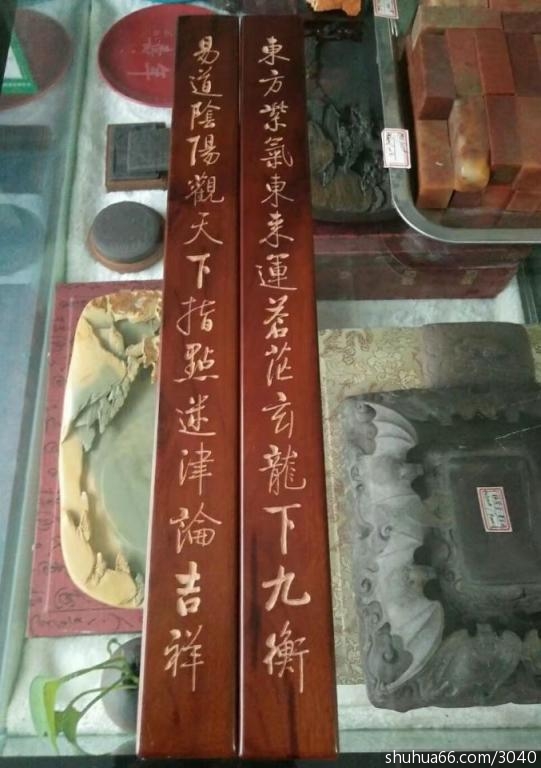 東方紫氣東来運蒼茫玄龍下九衡
易道陰陽觀天下指點迷津論吉祥
shuhua66.com/3040